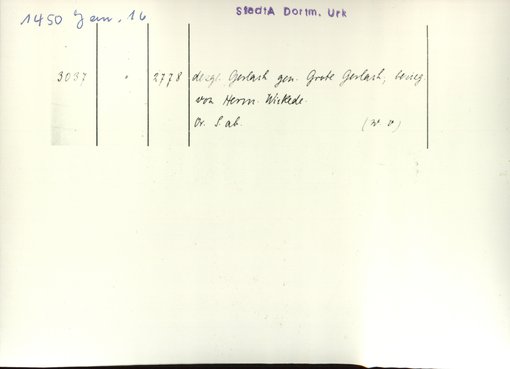 1450 Jan. 16
StadtA Dortm. Urk
3087 " 2778 desgl. Gerlach gen. Grote Gerlach, besieg.
von Herm. Wickede.
Or. S. ab. (w. o.)